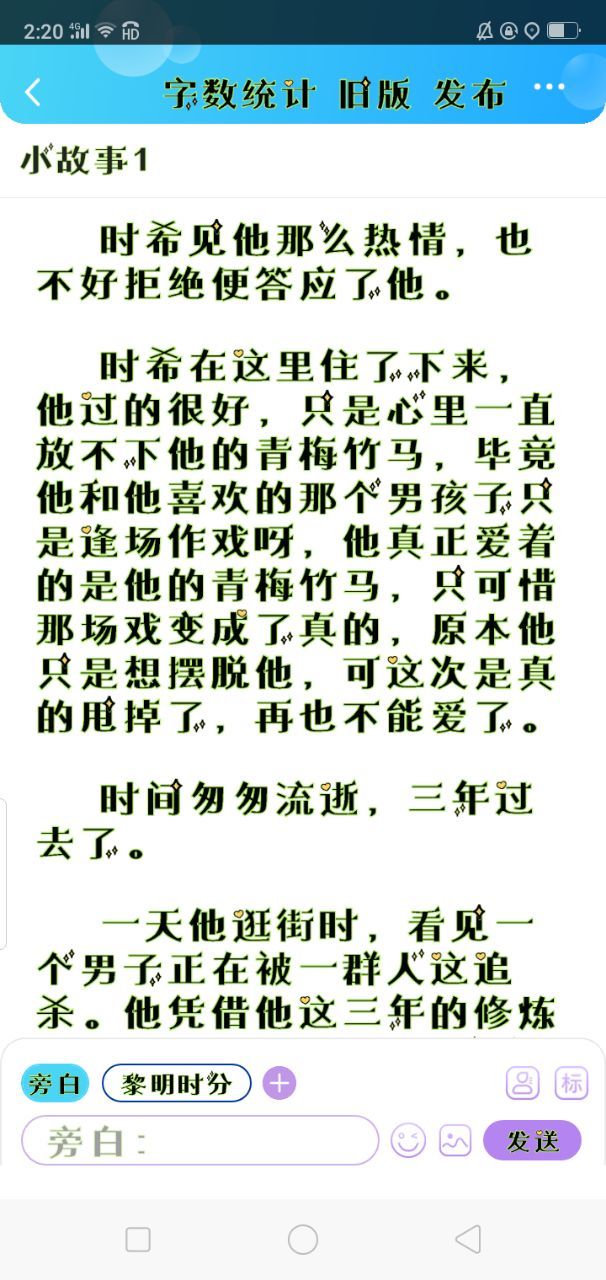 2:20 4G HD
字数统计 旧版 发布 ...
小故事1
时希见他那么热情，也
不好拒绝便答应了他。
时希在这里住了下来，
他过的很好，只是心里一直
放不下他的青梅竹马，毕竟
他和他喜欢的那个男孩子只
是逢场作戏呀，他真正爱着
的是他的青梅竹马，只可惜
那场戏变成了真的，原本他
只是想摆脱他，可这次是真
的甩掉了，再也不能爱了。
时间匆匆流逝，三年过
去了。
一天他逛街时，看见一
个男子正在被一群人这追
杀。他凭借他这三年的修炼
旁白 黎明时分 标
旁白： 发送